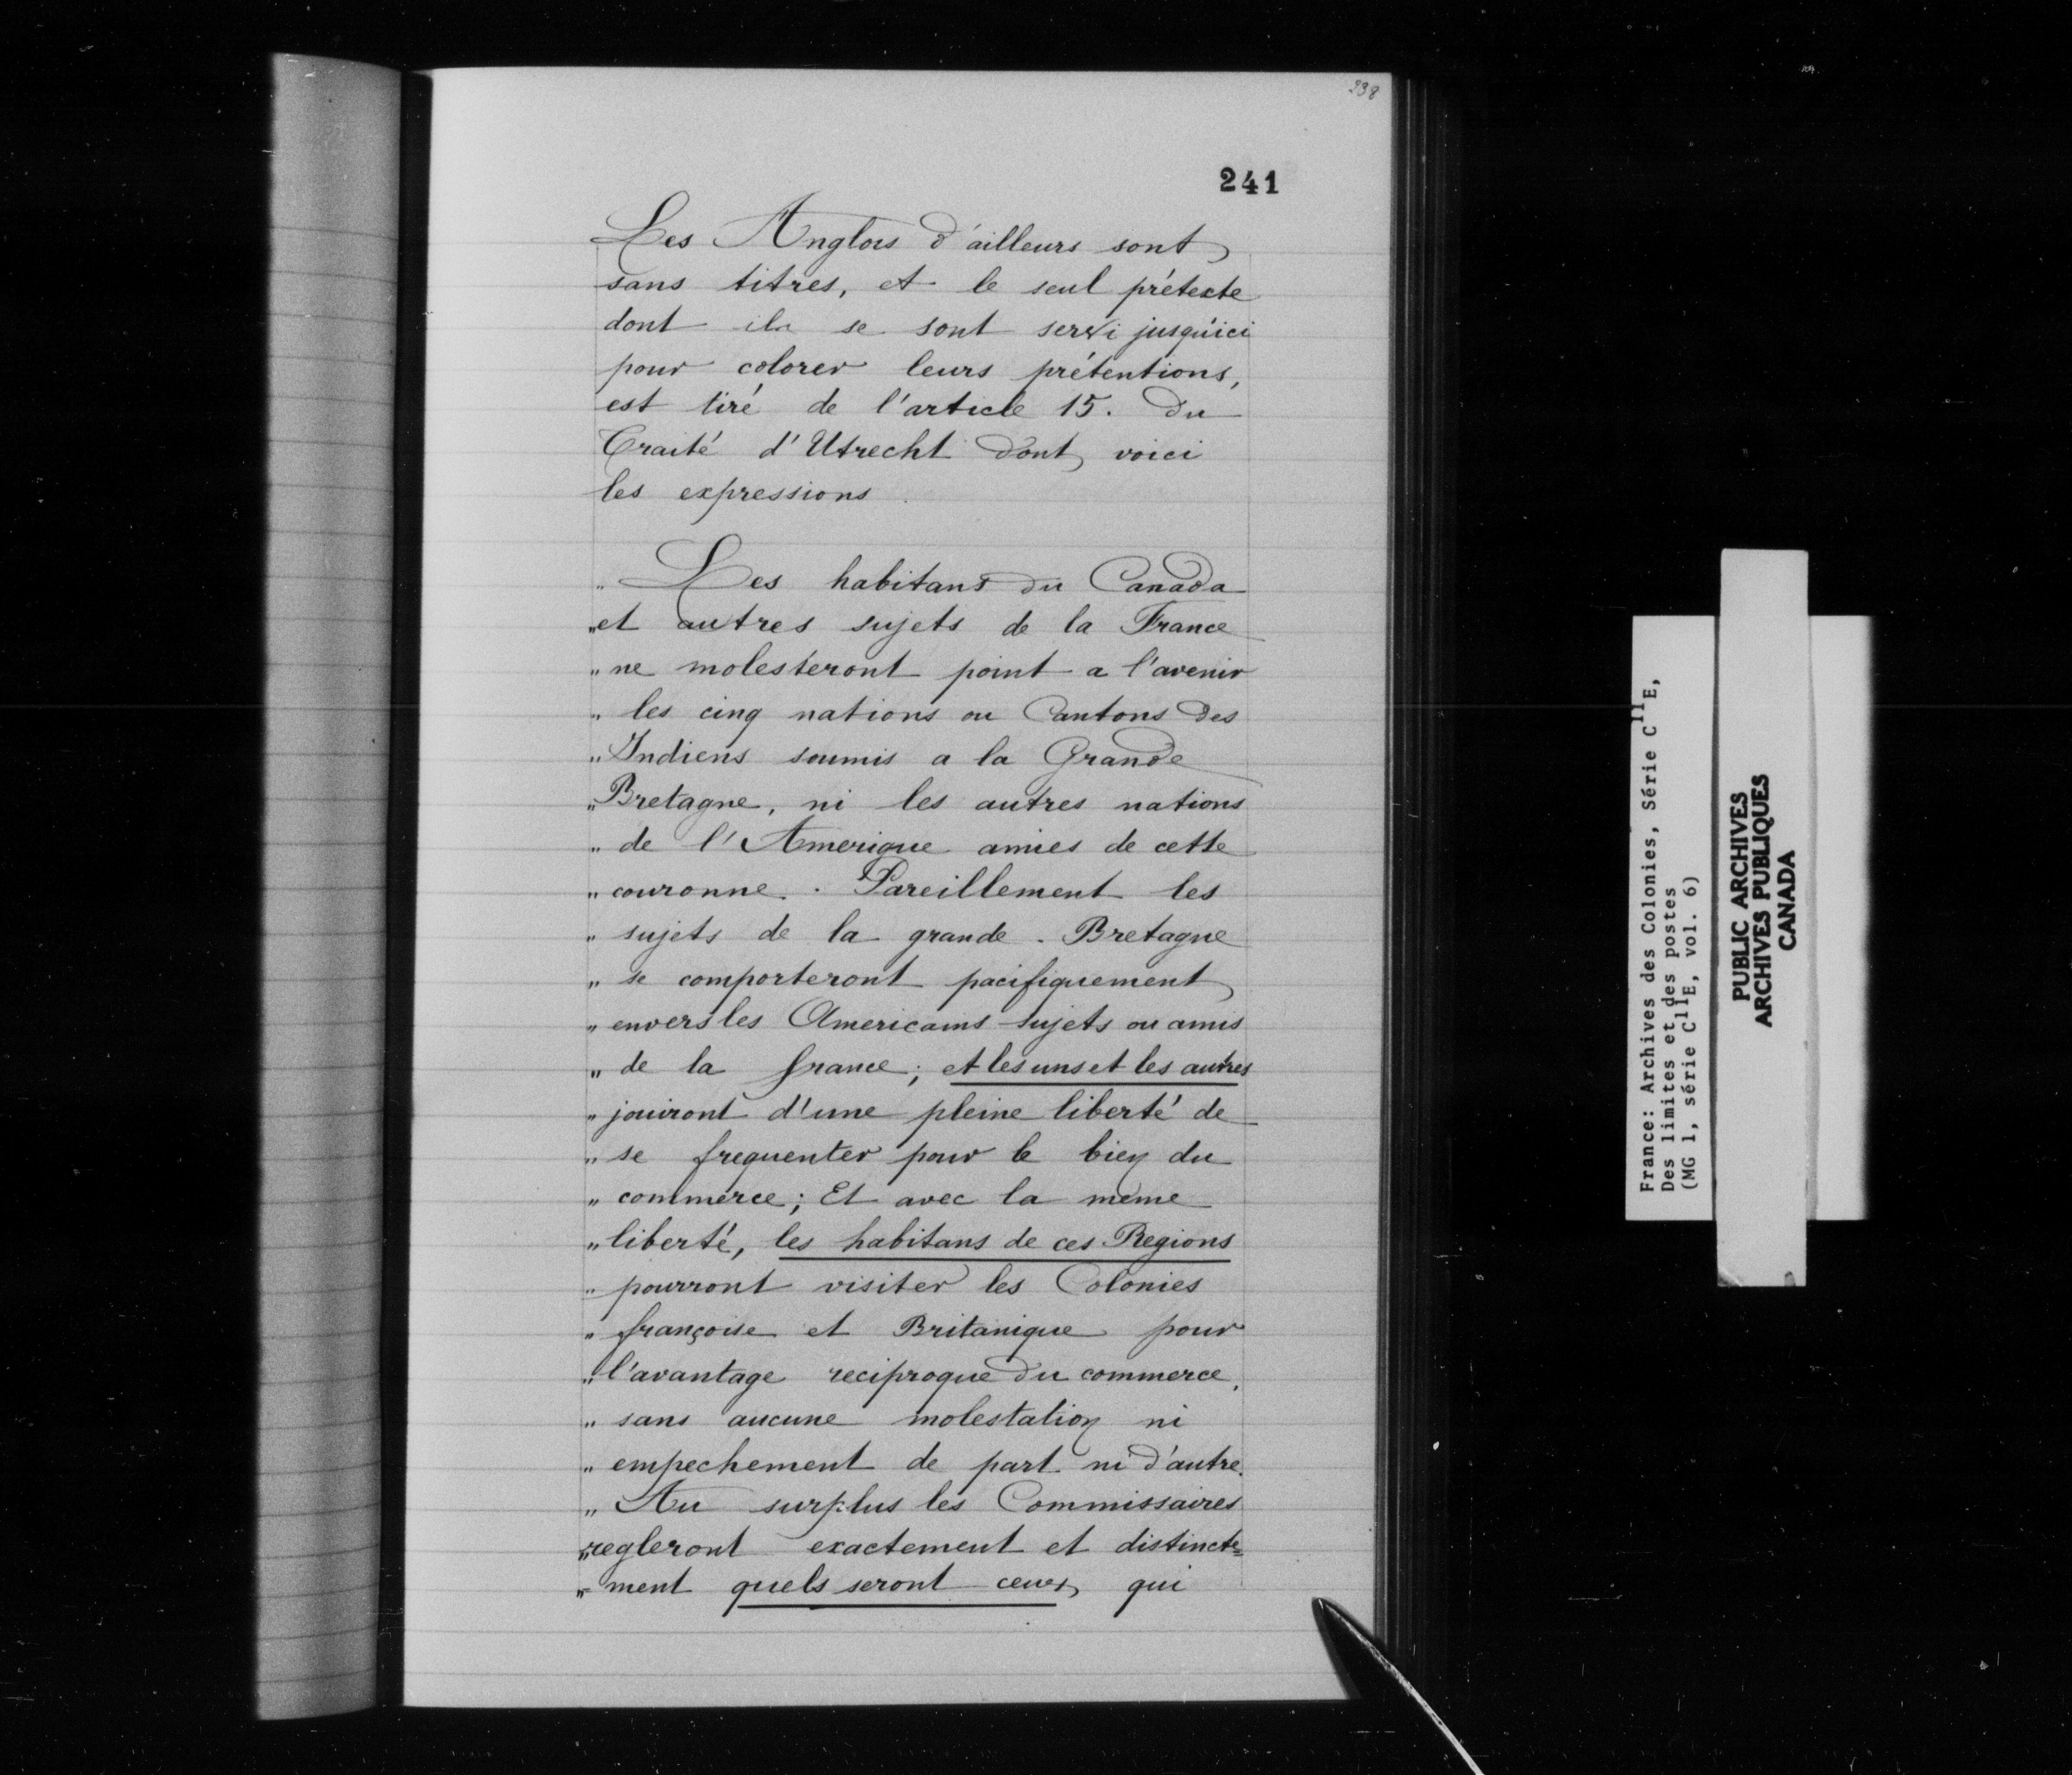 238
241
Les Anglois d'ailleurs sont
sans titres, et le seul prétexte
dont ils se sont servi jusqu'ici
pour colorer leurs prétentions,
est tiré de l'article 15. du
Traité d'Utrecht dont voici
les expressions.
„ Les habitans du Canada
„ et autres sujets de la France
„ ne molesteront point a l'avenir
„ les cinq nations ou Cantons des
„ Indiens soumis a la Grande
„ Bretagne, ni les autres nations
„ de l'Amerique amies de cette
„ couronne. Pareillement les
„ sujets de la grande. Bretagne
„ se comporteront pacifiquement
„ envers les Americains sujets ou amis
„ de la france; et les uns et les autres
„ jouiront d'une pleine liberté de
„ se frequenter pour le bien du
„ commerce; Et avec la meme
„ liberté, les habitans de ces Regions
„ pourront visiter les Colonies
„ françoise et Britanique pour
„ l'avantage reciproque du commerce,
„ sans aucune molestation ni
„ empechement de part ni d'autre.
„ Au surplus les Commissaires
„ regleront exactement et distincte=
„ ment quels seront ceux qui
France: Archives des Colonies, Série C11E,
Des limites et des postes
(MG 1, série C11E, vol. 6)
PUBLIC ARCHIVES
ARCHIVES PUBLIQUES
CANADA